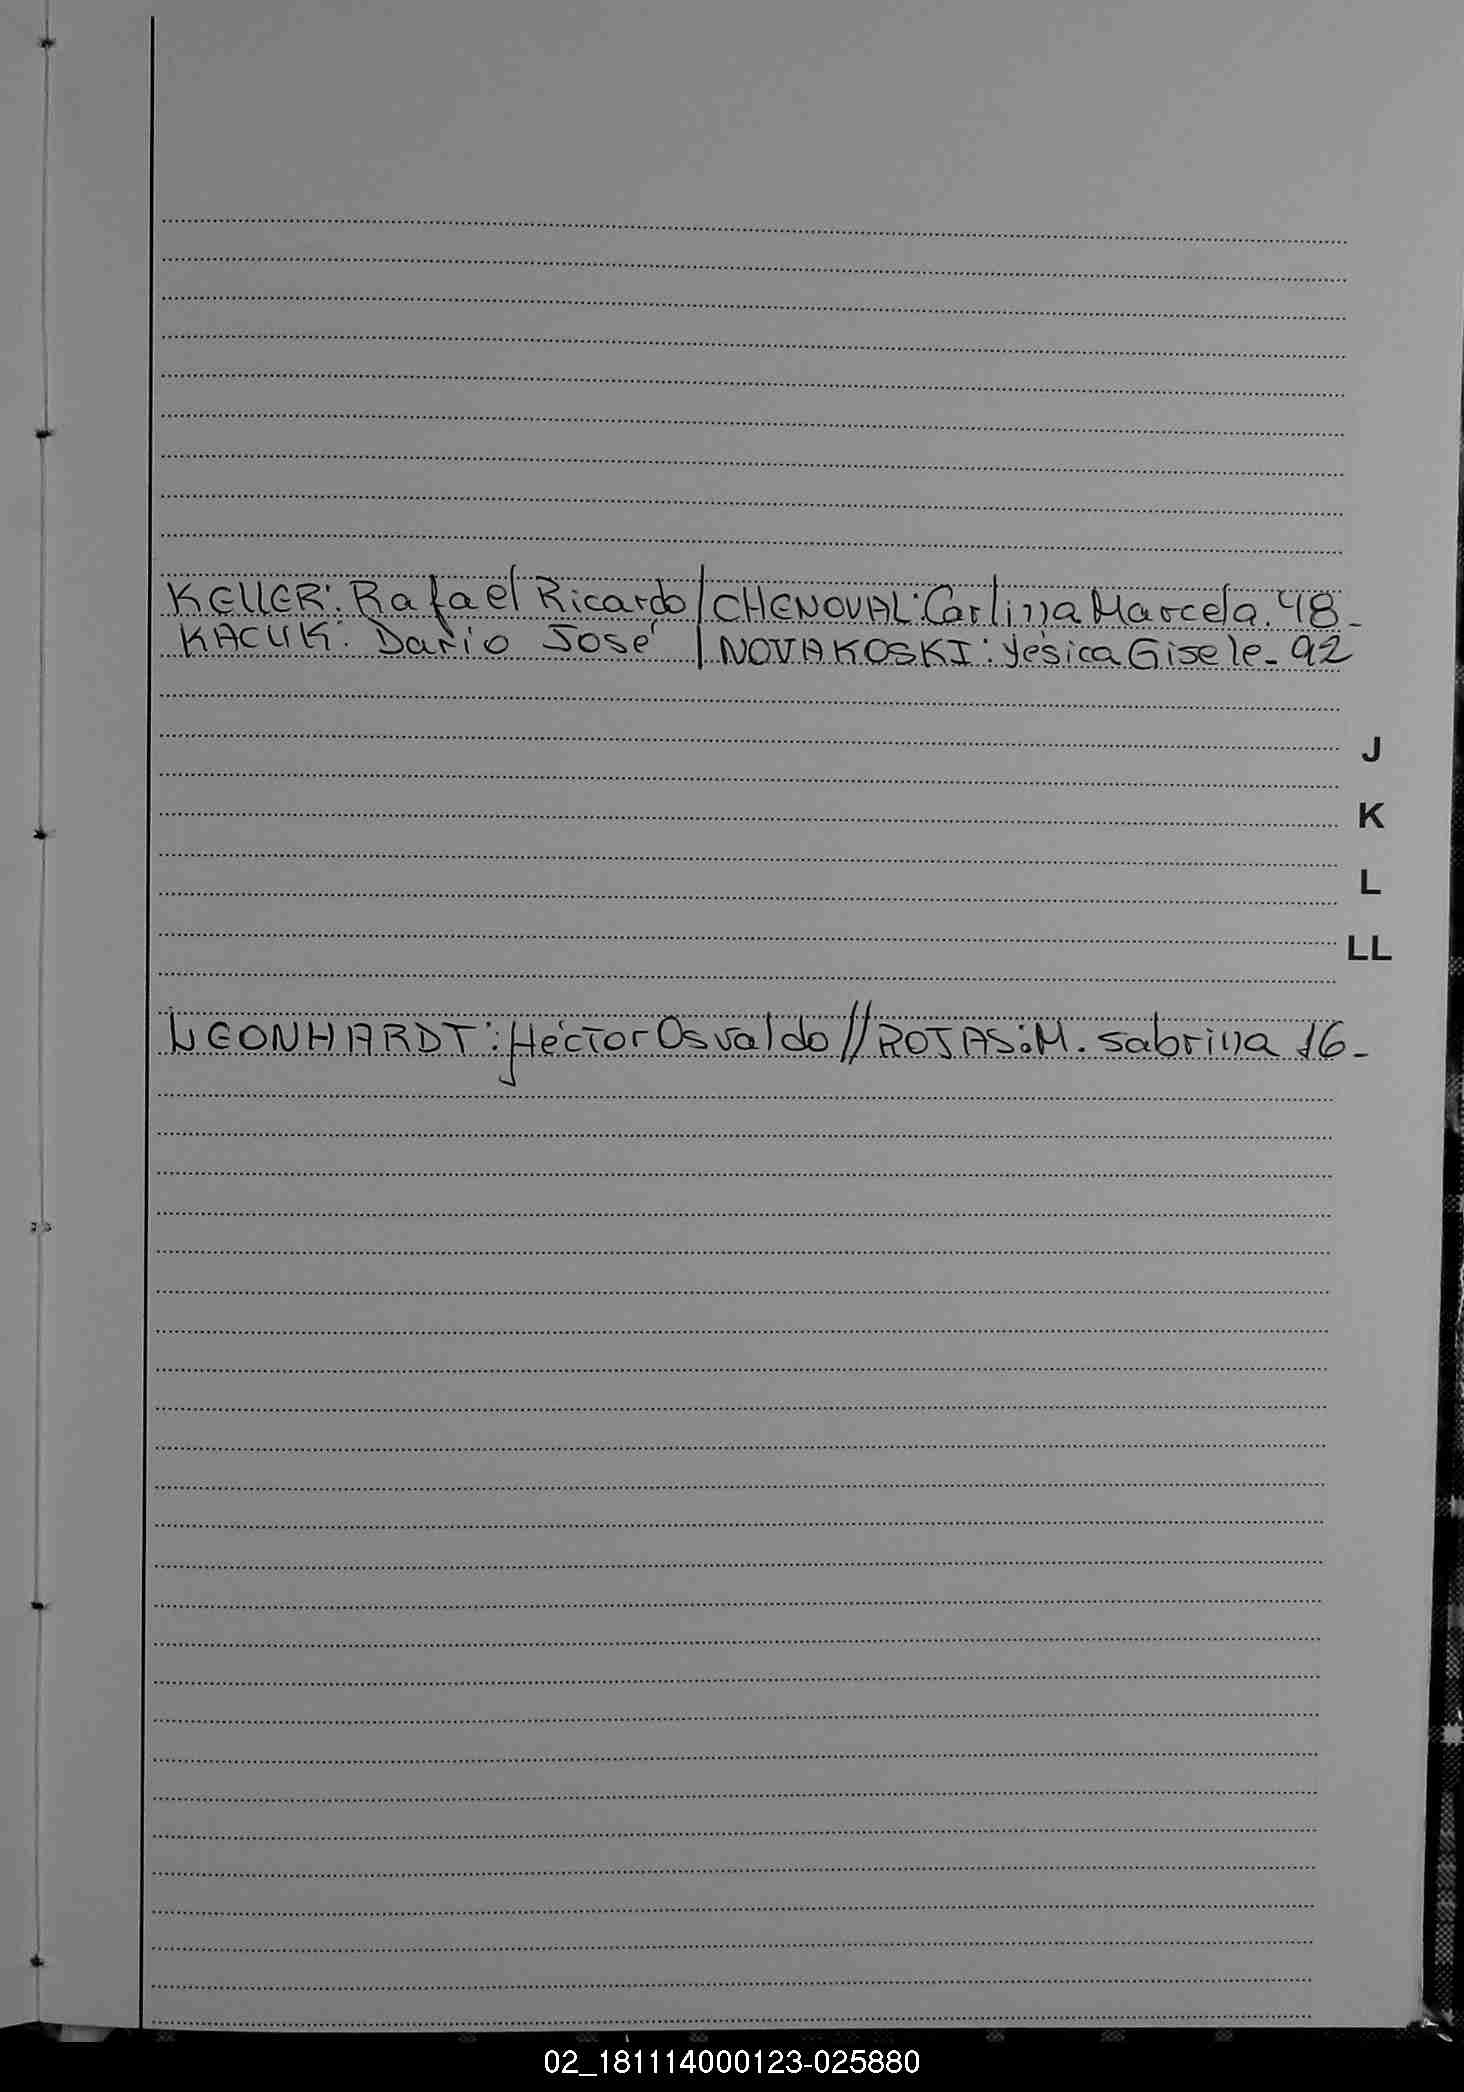 KELLER: Rafael Ricardo / CHENOVAL: Carlina Marcela. 48-
KACUK: Darío José | NOVAKOSKI: Yésica Gisele- 92
J
K
L
LL
LEONHARDT: Héctor Osvaldo // ROJAS: M. Sabrina 16-
02_181114000123-025880